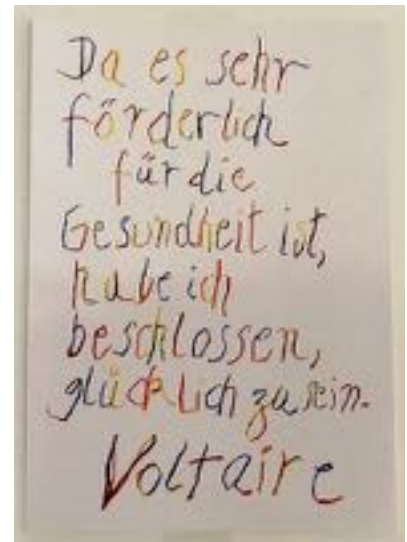 Da es sehr
förderlich
für die
Gesundheit ist,
habe ich
beschlossen,
glücklich zu sein.
Voltaire